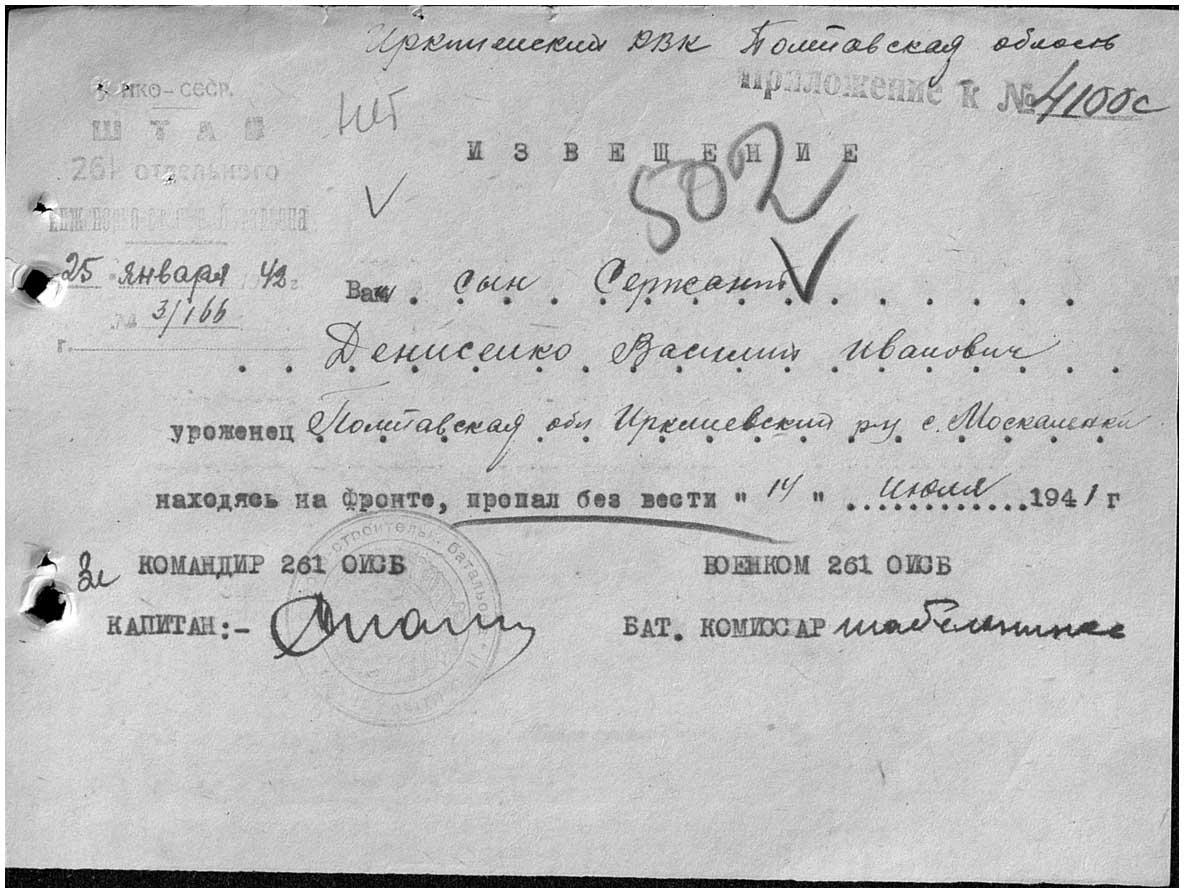 Ирклиевский РВК Полтавская область
Приложение к № 4100с
НКО-СССР.
ШТАБ
261 отдельного
25 января 42 г.
№ 3/166
г.
нет
ИЗВЕЩЕНИЕ
502
Ваш сын Сержант
Денисенко Василий Иванович
уроженец Полтавская обл Ирклиевский р-н с. Москаленки
находясь на фронте, пропал без вести " 14 " июля 1941 г
КОМАНДИР 261 ОИСБ
ВОЕНКОМ 261 ОИСБ
КАПИТАН:-
БАТ. КОМИССАР
строительн. батальон